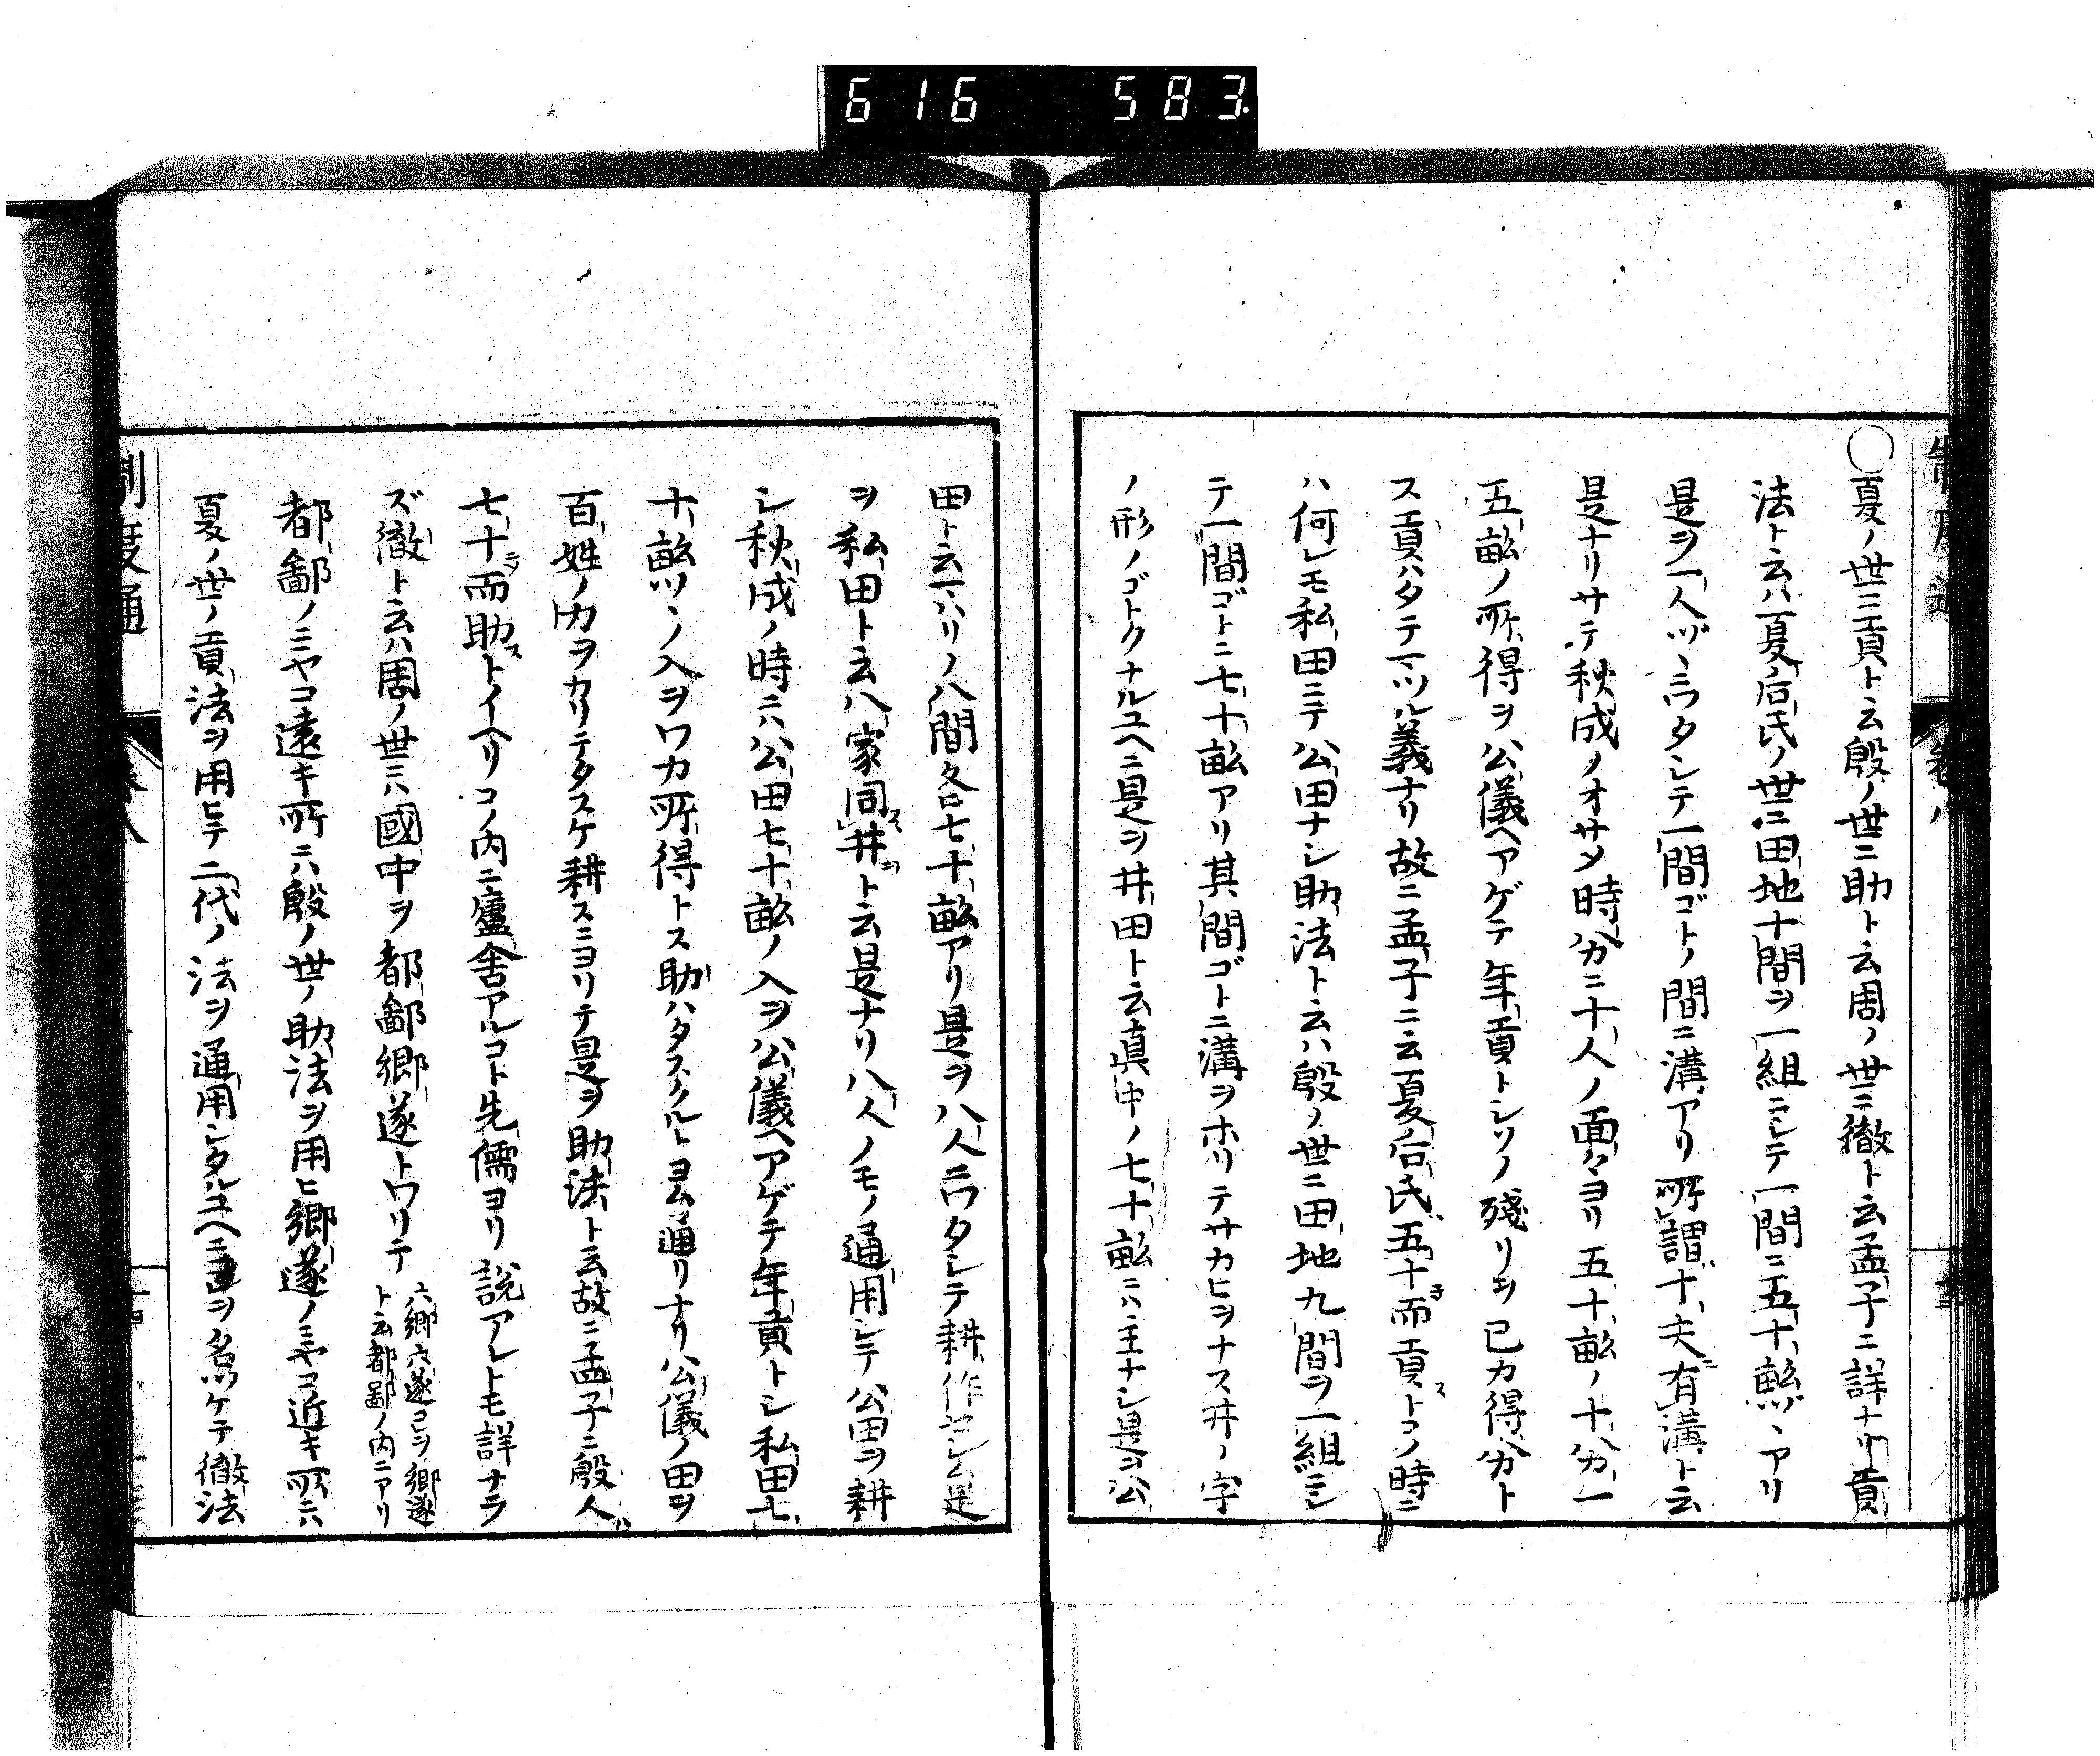 616 583
制度通 卷八
○夏ノ世ニ貢ト云殷ノ世ニ助ト云周ノ世ニ徹ト云孟子ニ詳ナリ貢
法ト云ハ夏后氏ノ世ニ田地十間ヲ一組ニシテ一間ニ五十畝ヅヽアリ
是ヲ一人ヅヽニワタシテ一間ゴトノ間ニ溝アリ所謂十夫有溝ト云
是ナリサテ秋成ノオサメ時分ニ十人ノ面々ヨリ五十畝ノ十分一
五畝ノ所得ヲ公儀ヘアゲテ年貢トシソノ殘リヲ己カ得分ト
ス貢ハタテマツル義ナリ故ニ孟子ニ云夏后氏五十而貢ストコノ時ニ
ハ何レモ私田ニテ公田ナシ助法ト云ハ殷ノ世ニ田地九間ヲ一組ニシ
テ一間ゴトニ七十畝アリ其間ゴトニ溝ヲホリテサカヒヲナス井ノ字
ノ形ノゴトクナルユヘニ是ヲ井田ト云眞中ノ七十畝ニハ主ナシ是ヲ公
田ト云マハリノ八間各七十畝アリ是ヲ八人ニワタシテ耕作セシム是
ヲ私田ト云八家同井ト云是ナリ八人ノモノ通用シテ公田ヲ耕
シ秋成ノ時ニハ公田七十畝ノ入ヲ公儀ヘアゲテ年貢トシ私田七
十畝ツヽノ入ヲワカ所得トス助ハタスクルトヨム通リナリ公儀ノ田ヲ
百姓ノ力ヲカリテタスケ耕スニヨリテ是ヲ助法ト云故ニ孟子ニ殷人
七十而助ストイヘリコノ内ニ廬舍アルコト先儒ヨリ説アレトモ詳ナラ
ズ徹ト云ハ周ノ世ニハ國中ヲ都鄙郷遂トワリテ
六郷六遂コレヲ郷遂
ト云都鄙ノ内ニアリ
都鄙ノミヤコ遠キ所ニハ殷ノ世ノ助法ヲ用ヒ郷遂ノミヤコ近キ所ニハ
夏ノ世ノ貢法ヲ用ヒテ二代ノ法ヲ通用シタルユヘニ是ヲ名ツケテ徹法
制度通 卷八